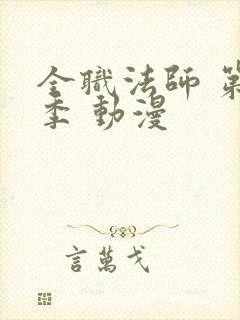 全職法師 第
季 動漫
言萬戈